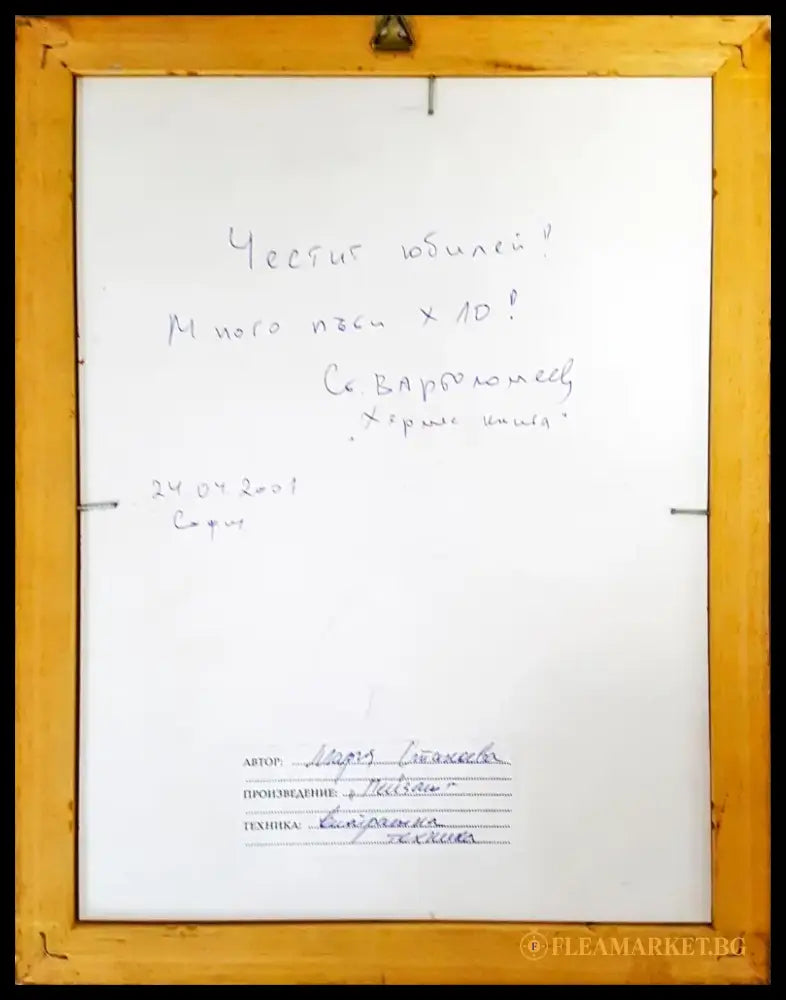 Честит юбилей!
Много пъти х 10!
Св. Вартоломеев
"Хермес книга"
24.04.2001
София
АВТОР: Мария Станчева
ПРОИЗВЕДЕНИЕ: "Пейзаж"
ТЕХНИКА: Витражна
техника
FLEAMARKET.BG